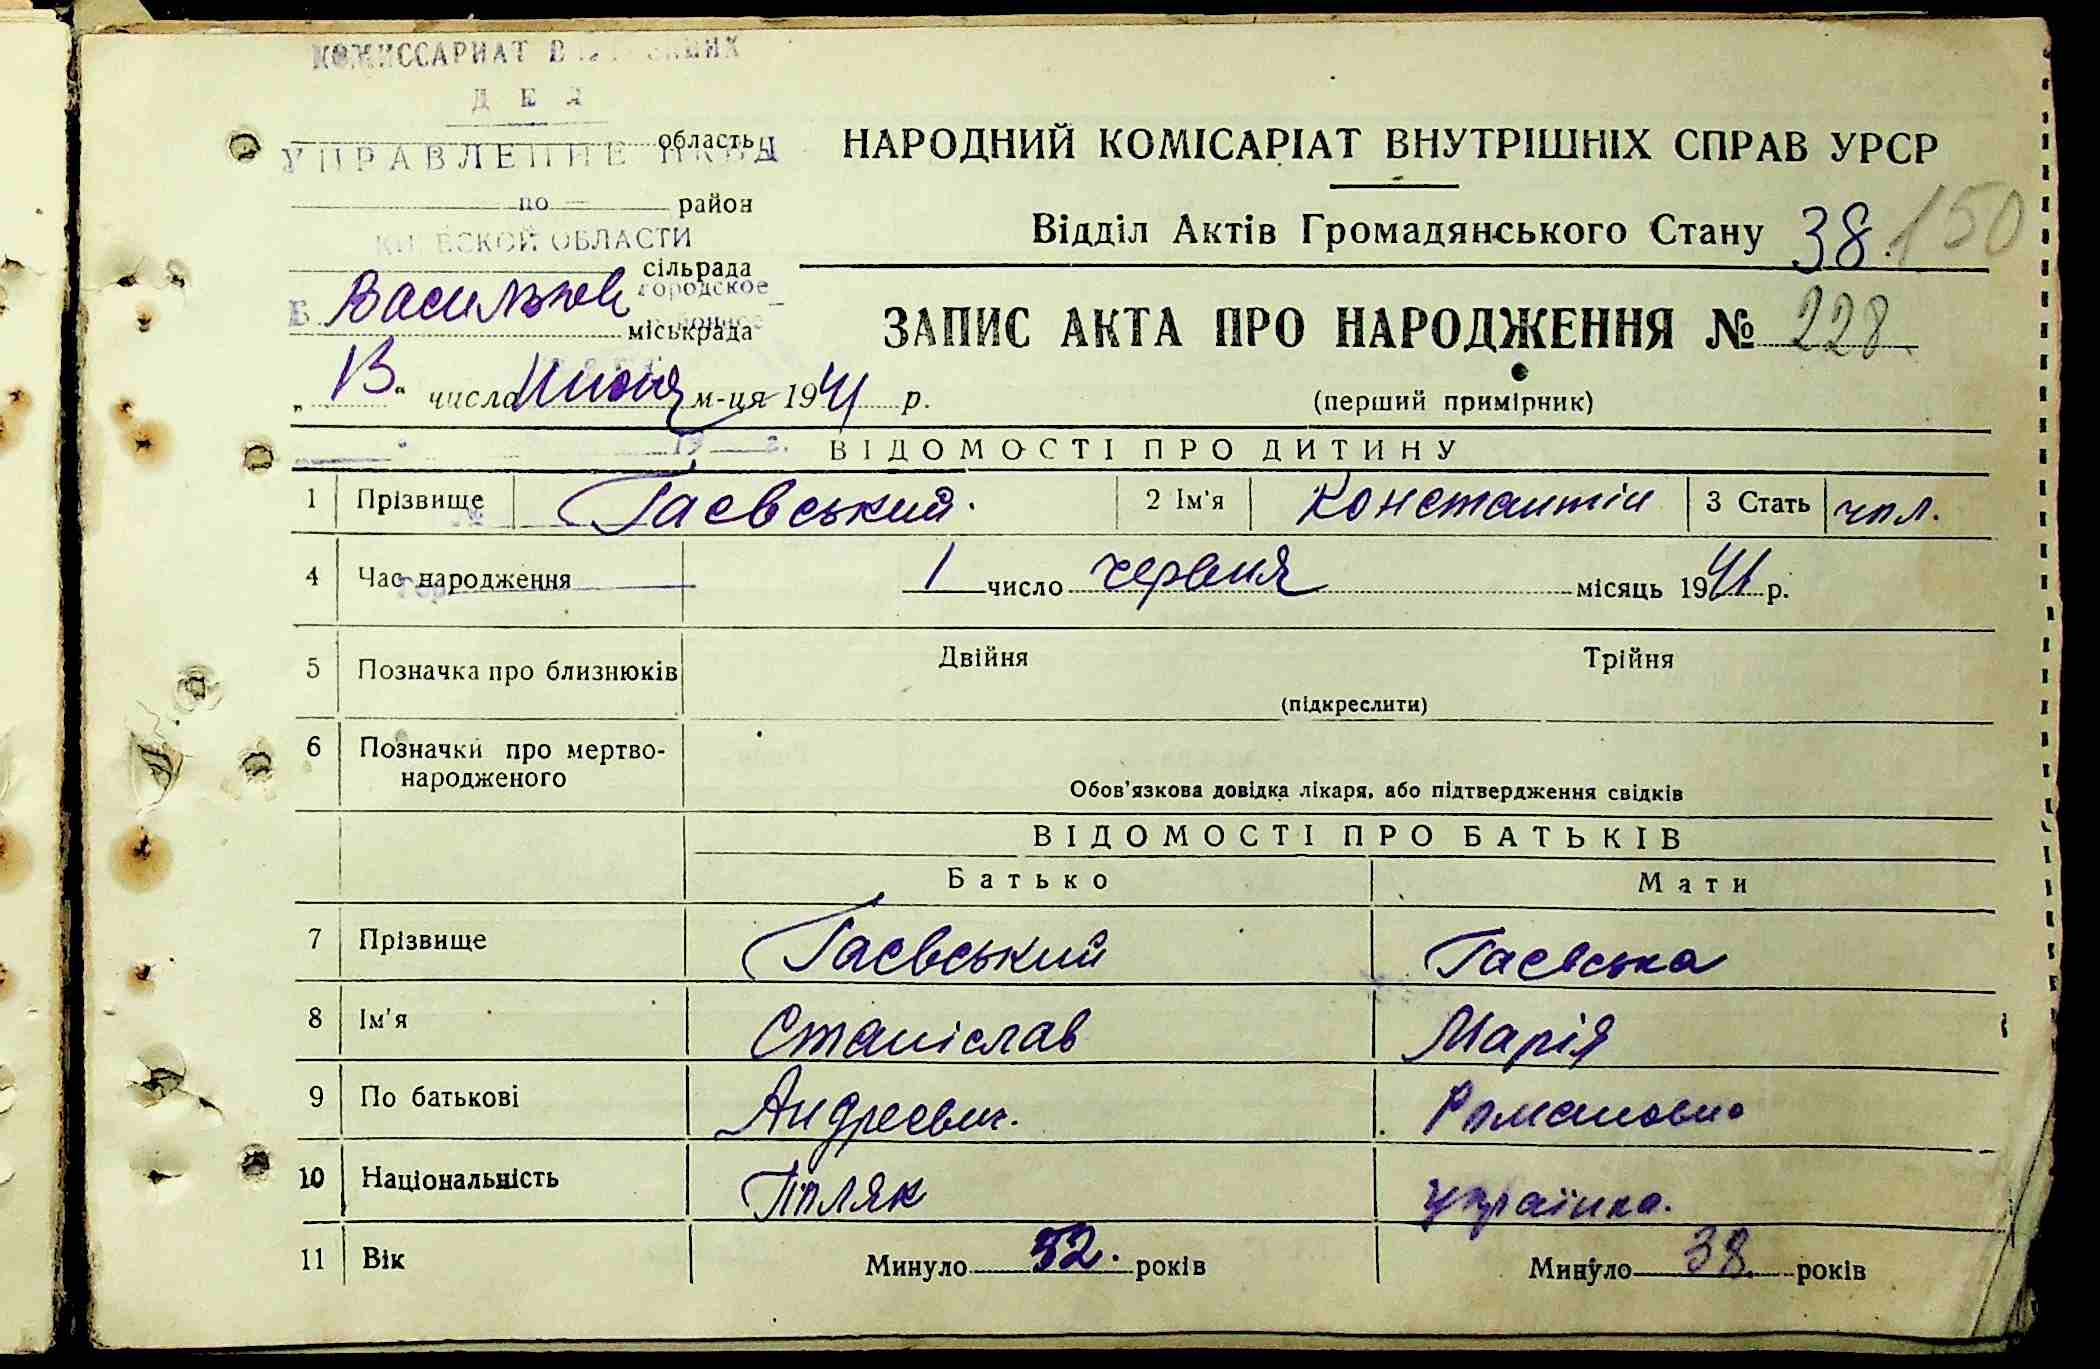 КОМИССАРИАТ
ДЕЛ
область
УПРАВЛЕНИЕ НКВД
НАРОДНИЙ КОМІСАРІАТ ВНУТРІШНІХ СПРАВ УРСР
по район
КИЕВСКОЙ ОБЛАСТИ
Відділ Актів Громадянського Стану 38. 150
сільрада
городское
Васильков
міськрада
ЗАПИС АКТА ПРО НАРОДЖЕННЯ № 228.
„13“ числа Июня м-ця 1941 р.
(перший примірник)
19 г.
ВІДОМОСТІ ПРО ДИТИНУ
1 Прізвище Гаєвський. 2 Ім'я Константін 3 Стать чол.
4 Час народження 1 число червня місяць 1941 р.
5 Позначка про близнюків Двійня Трійня
(підкреслити)
6 Позначки про мертво-
народженого
Обов'язкова довідка лікаря, або підтвердження свідків
ВІДОМОСТІ ПРО БАТЬКІВ
Батько Мати
7 Прізвище Гаєвський Гаєвська
8 Ім'я Станіслав Марія
9 По батькові Андреевич. Романовна
10 Національність Поляк українка.
11 Вік Минуло 52. років Минуло 38. років